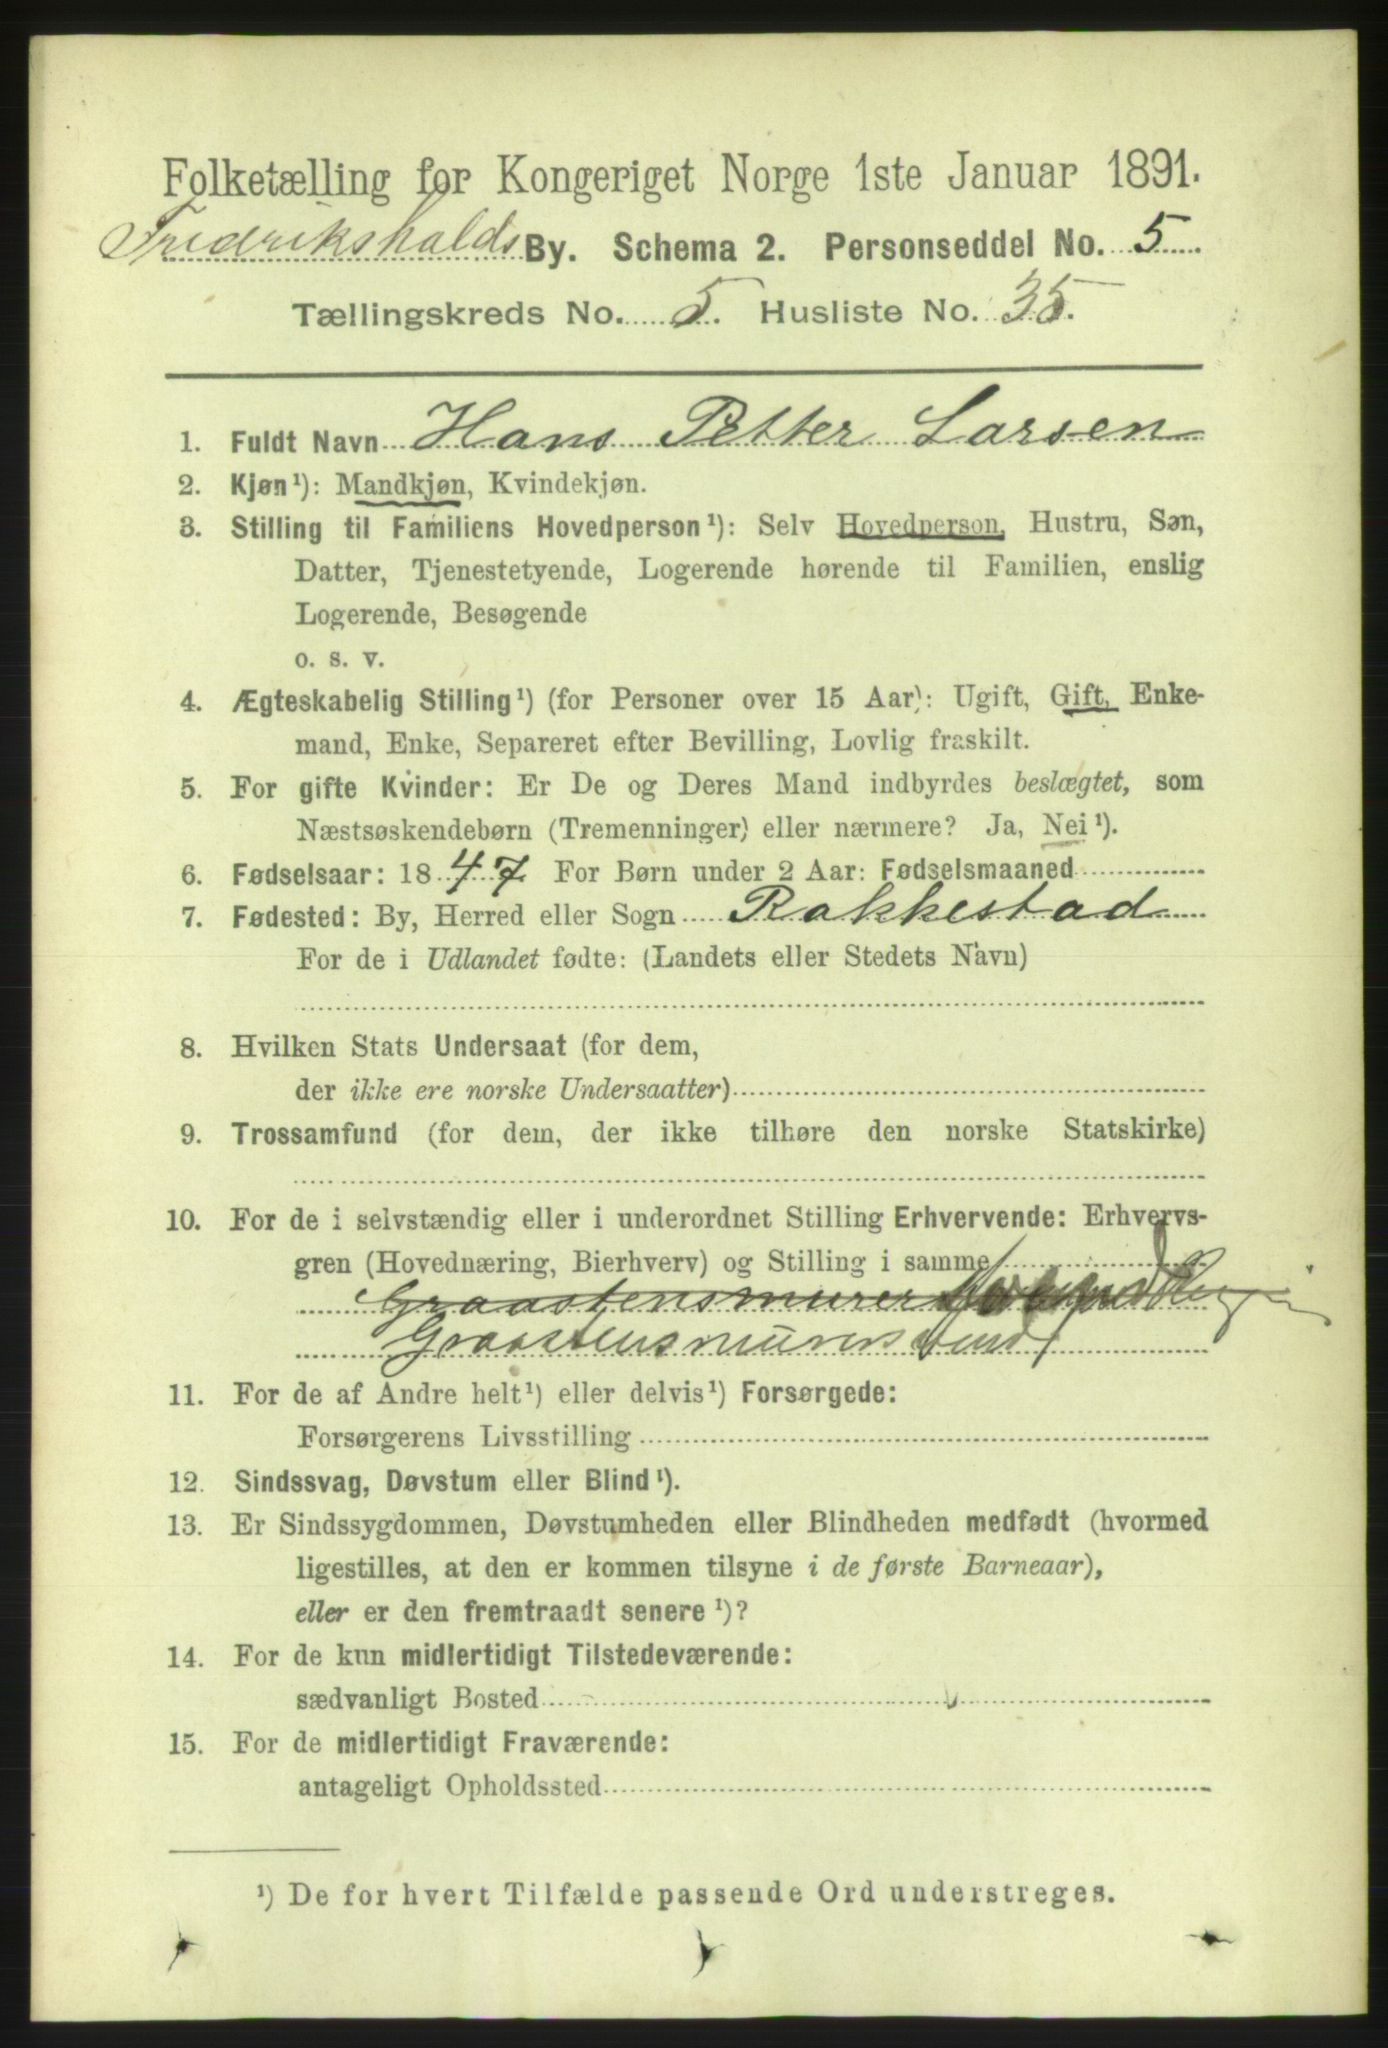 Folketælling for Kongeriget Norge 1ste Januar 1891.
Fredrikshalds By. Schema 2. Personseddel No. 5
Tællingskreds No. 5. Husliste No. 35.
1. Fuldt Navn Hans Petter Larsen
2. Kjøn¹): Mandkjøn, Kvindekjøn.
3. Stilling til Familiens Hovedperson¹): Selv Hovedperson, Hustru, Søn,
Datter, Tjenestetyende, Logerende hørende til Familien, enslig
Logerende, Besøgende
o. s. v.
4. Ægteskabelig Stilling¹) (for Personer over 15 Aar): Ugift, Gift, Enke-
mand, Enke, Separeret efter Bevilling, Lovlig fraskilt.
5. For gifte Kvinder: Er De og Deres Mand indbyrdes beslægtet, som
Næstsøskendebørn (Tremenninger) eller nærmere? Ja, Nei¹).
6. Fødselsaar: 1847 For Børn under 2 Aar: Fødselsmaaned
7. Fødested: By, Herred eller Sogn Rakkestad
For de i Udlandet fødte: (Landets eller Stedets Navn)
8. Hvilken Stats Undersaat (for dem,
der ikke ere norske Undersaatter)
9. Trossamfund (for dem, der ikke tilhøre den norske Statskirke)
10. For de i selvstændig eller i underordnet Stilling Erhvervende: Erhvervs-
gren (Hovednæring, Bierhverv) og Stilling i samme
Graastensmurer
Graastensmurersvend
11. For de af Andre helt¹) eller delvis¹) Forsørgede:
Forsørgerens Livsstilling
12. Sindssvag, Døvstum eller Blind¹).
13. Er Sindssygdommen, Døvstumheden eller Blindheden medfødt (hvormed
ligestilles, at den er kommen tilsyne i de første Barneaar),
eller er den fremtraadt senere¹)?
14. For de kun midlertidigt Tilstedeværende:
sædvanligt Bosted
15. For de midlertidigt Fraværende:
antageligt Opholdssted
¹) De for hvert Tilfælde passende Ord understreges.